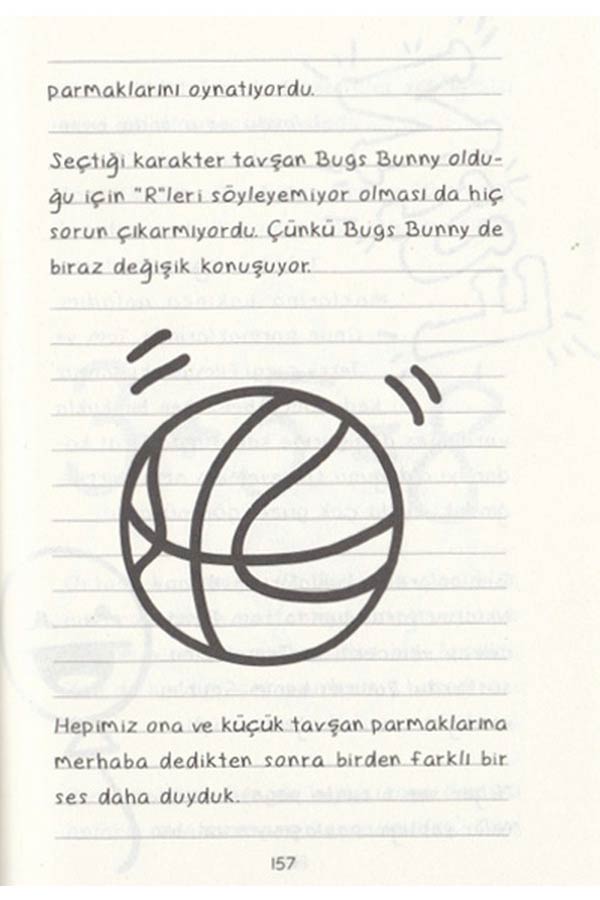 parmaklarını oynatıyordu.
Seçtiği karakter tavşan Bugs Bunny oldu-
ğu için "R"leri söyleyemiyor olması da hiç
sorun çıkarmıyordu. Çünkü Bugs Bunny de
biraz değişik konuşuyor.
Hepimiz ona ve küçük tavşan parmaklarına
merhaba dedikten sonra birden farklı bir
ses daha duyduk.
157